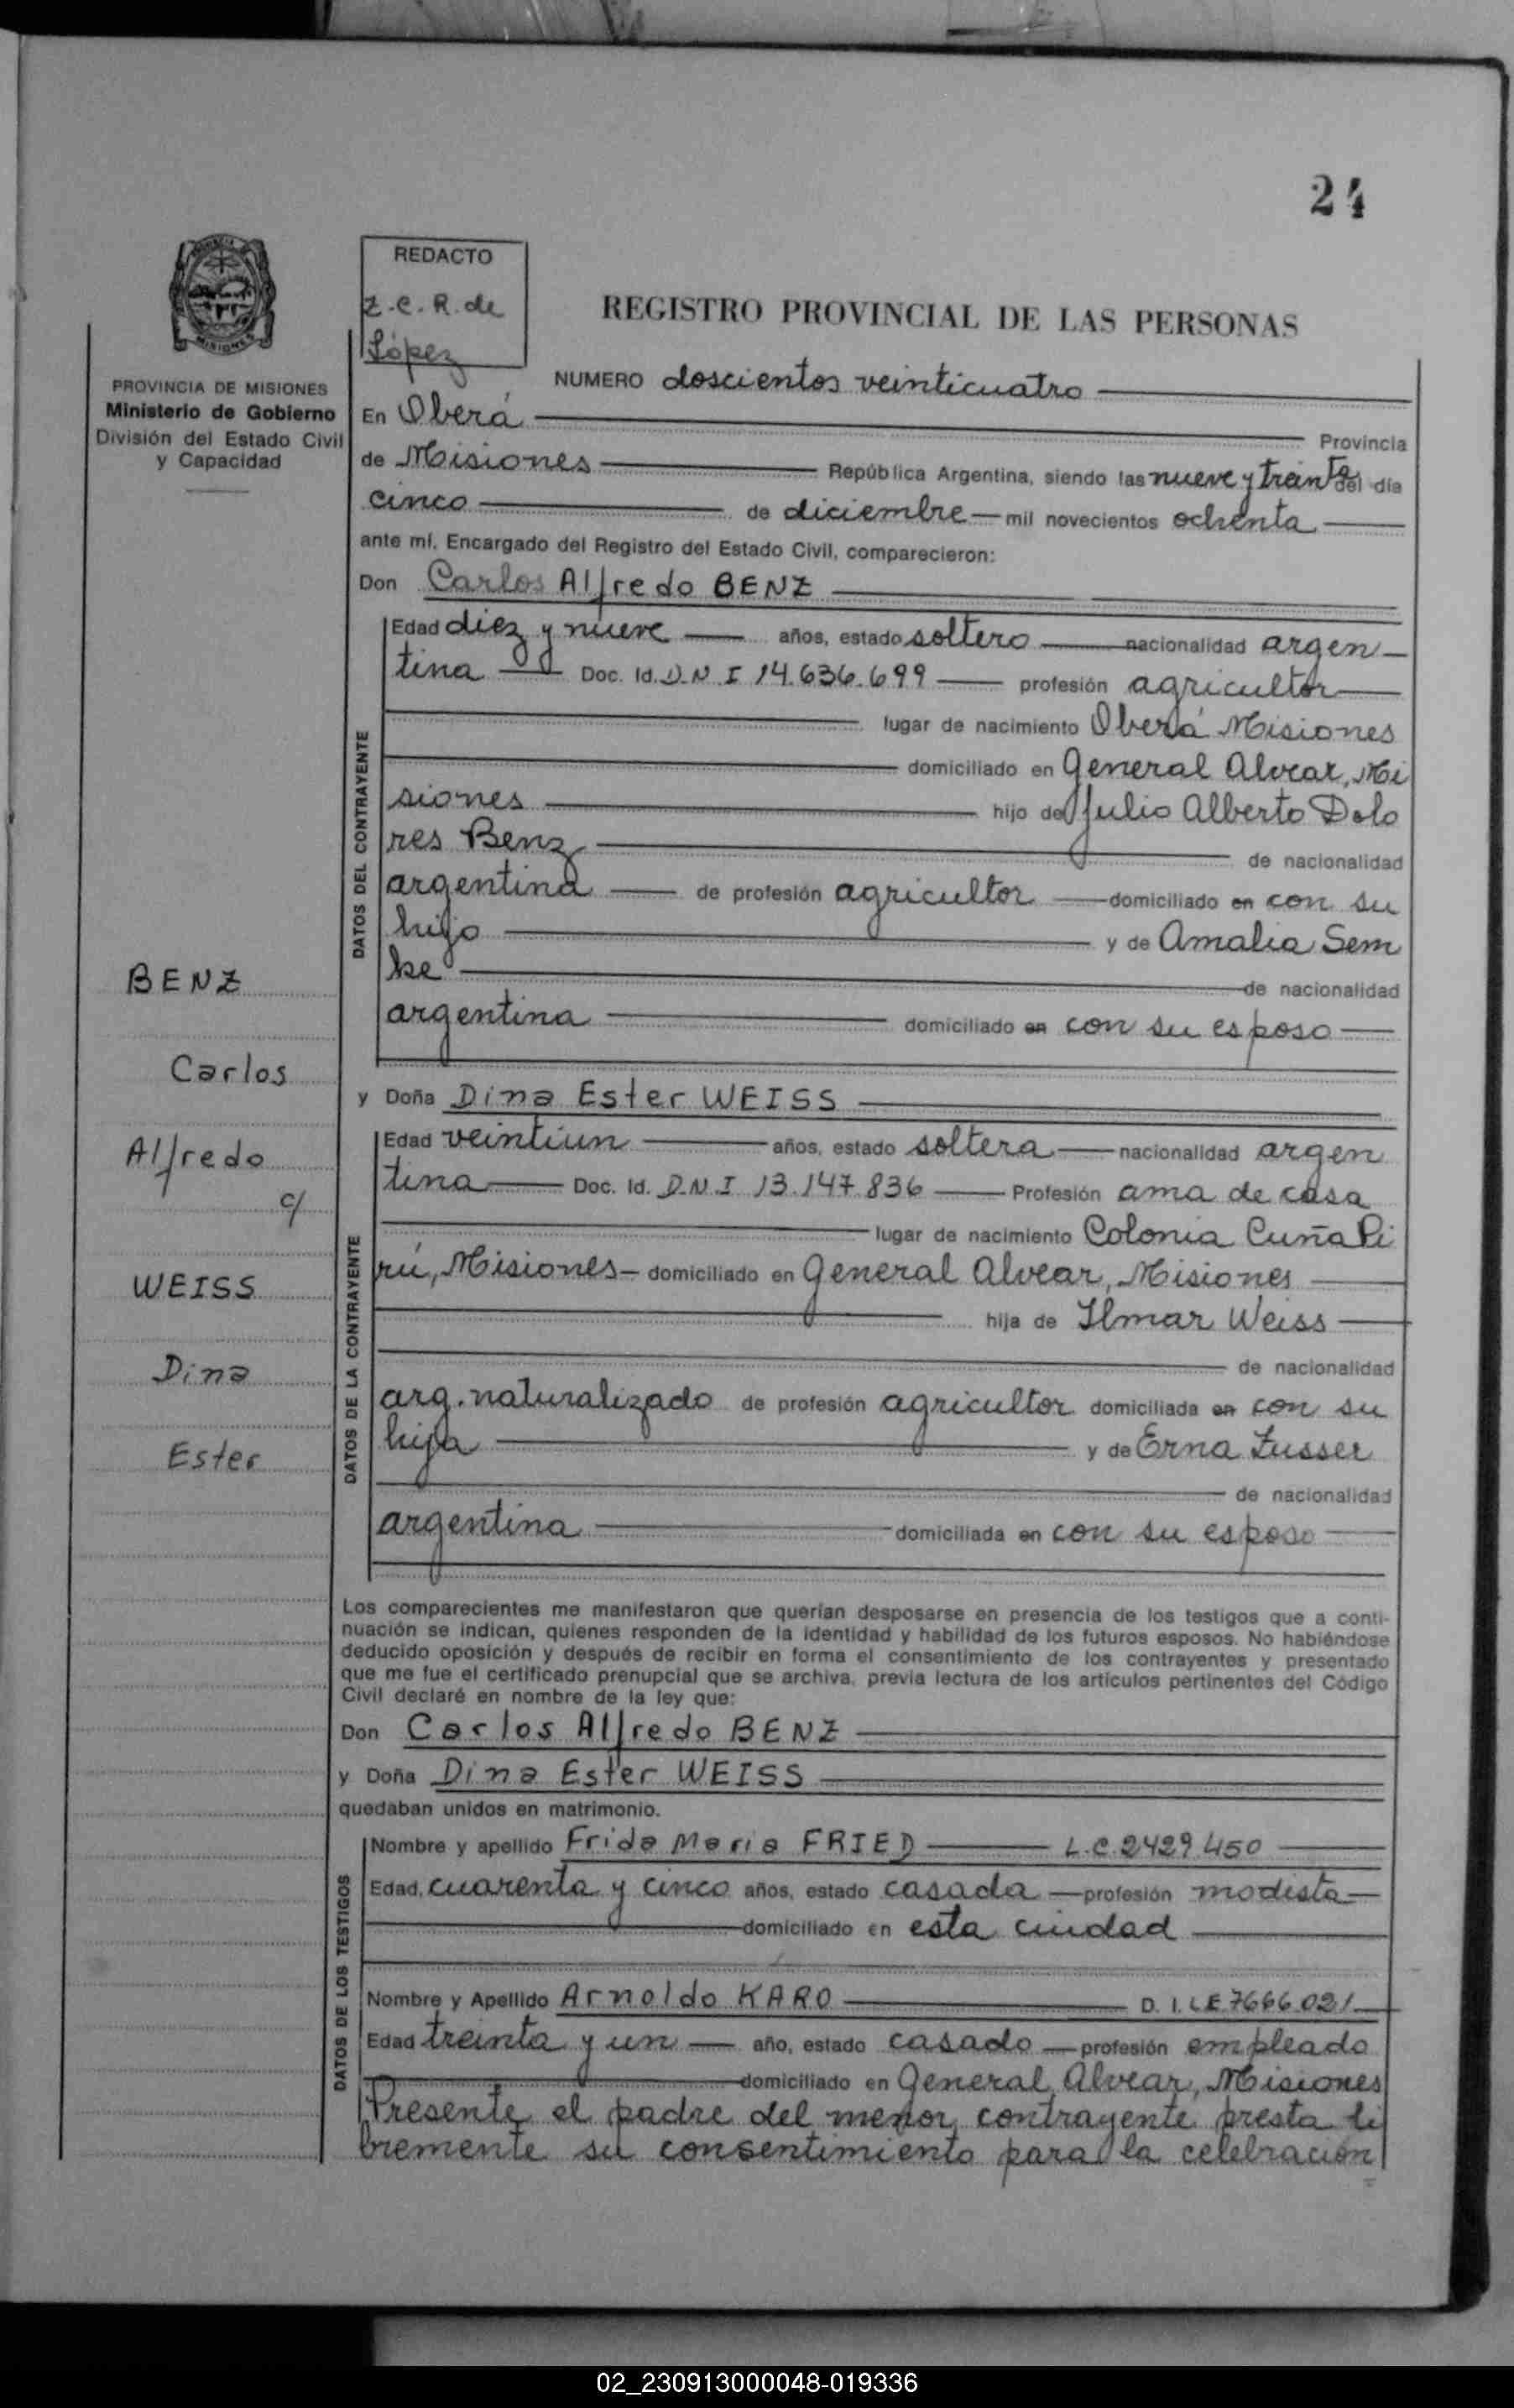 24
REDACTO
Z.C.R. de
López
REGISTRO PROVINCIAL DE LAS PERSONAS
PROVINCIA DE MISIONES
Ministerio de Gobierno
División del Estado Civil
y Capacidad
NUMERO doscientos veinticuatro
En Oberá Provincia
de Misiones República Argentina, siendo las nueve y treinta del día
cinco de diciembre mil novecientos ochenta
ante mí, Encargado del Registro del Estado Civil, comparecieron:
Don Carlos Alfredo BENZ
DATOS DEL CONTRAYENTE
Edad diez y nueve años, estado soltero nacionalidad argen
tina Doc. Id. D.N.I 14.636.699 profesión agricultor
lugar de nacimiento Oberá Misiones
domiciliado en General Alvear, Mi
siones hijo de Julio Alberto Dolo
res Benz de nacionalidad
argentina de profesión agricultor domiciliado en con su
hijo y de Amalia Sem
ke de nacionalidad
argentina domiciliado en con su esposo
BENZ
Carlos
Alfredo
c/
WEISS
Dina
Ester
y Doña Dina Ester WEISS
DATOS DE LA CONTRAYENTE
Edad veintiun años, estado soltera nacionalidad argen
tina Doc. Id. D.N.I 13.147.836 Profesión ama de casa
lugar de nacimiento Colonia Cuña Pi
rú, Misiones domiciliado en General Alvear, Misiones
hija de Ilmar Weiss
de nacionalidad
arg. naturalizado de profesión agricultor domiciliada en con su
hija y de Erna Zusser
de nacionalidad
argentina domiciliada en con su esposo
Los comparecientes me manifestaron que querían desposarse en presencia de los testigos que a conti-
nuación se indican, quienes responden de la identidad y habilidad de los futuros esposos. No habiéndose
deducido oposición y después de recibir en forma el consentimiento de los contrayentes y presentado
que me fue el certificado prenupcial que se archiva, previa lectura de los artículos pertinentes del Código
Civil declaré en nombre de la ley que:
Don Carlos Alfredo BENZ
y Doña Dina Ester WEISS
quedaban unidos en matrimonio.
DATOS DE LOS TESTIGOS
Nombre y apellido Frida Maria FRIED L.C. 2429450
Edad, cuarenta y cinco años, estado casada profesión modista
domiciliado en esta ciudad
Nombre y Apellido Arnoldo KARO D. I. L.E 7666021
Edad treinta y un año, estado casado profesión empleado
domiciliado en General Alvear, Misiones
Presente el padre del menor contrayente presta li
bremente su consentimiento para la celebración
02_230913000048-019336